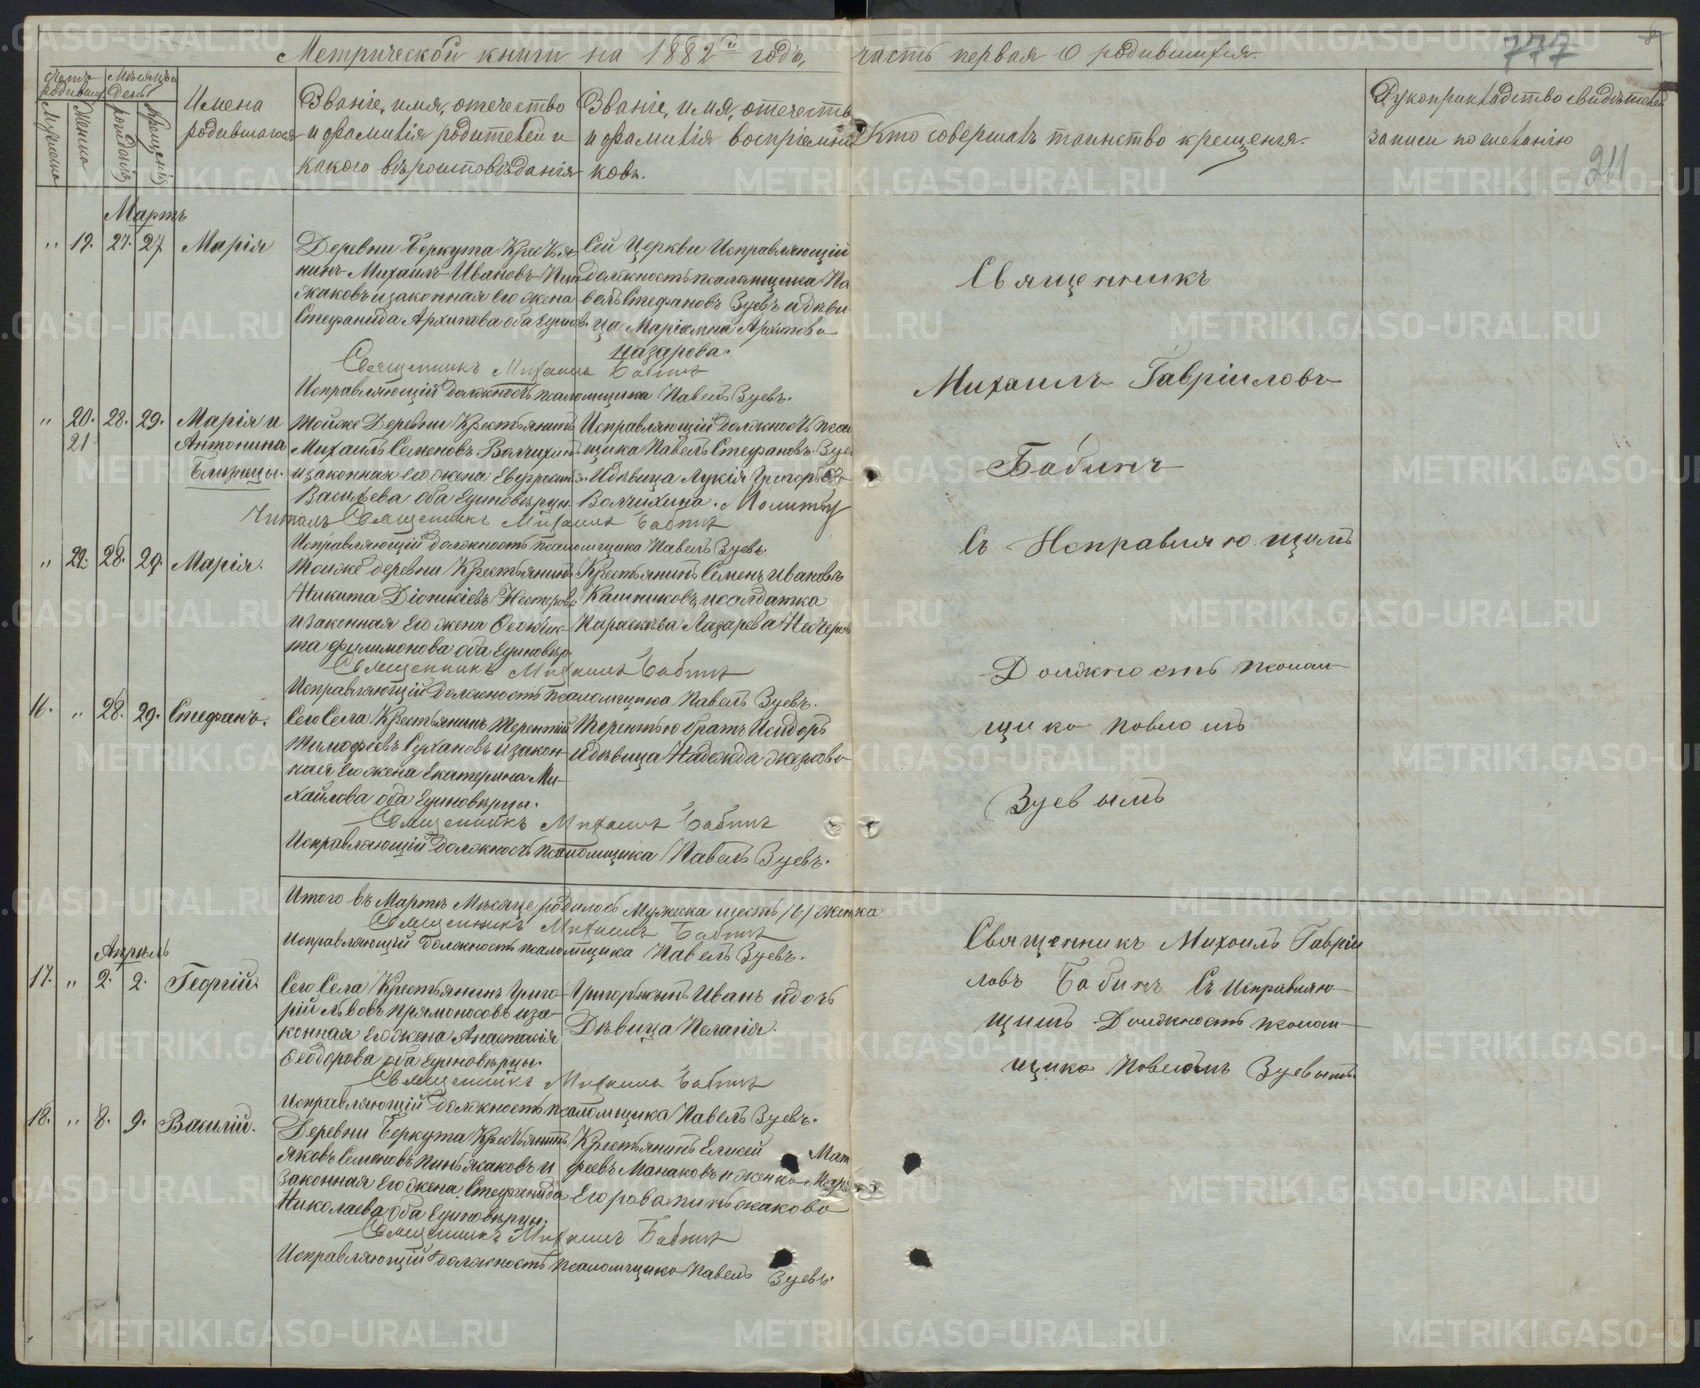 Метрической книги на 1882й годъ, часть первая о родившихся.
777
24
Счетъ родивших.
Мѣсяцъ и день
Мужеска
Женска
рожденія
крещенія
Имена
родившагося
Званіе, имя, отечество
и фамилія родителей и
какого вѣроисповѣданія
Званіе, имя, отечество
и фамилія воспріемни
ковъ.
Кто совершалъ таинство крещенія.
Рукоприкладство свидѣтелей
записи по желанію
Мартъ
" 19. 27. 27 Марія
Деревни Беркута Крестья
нинъ Михаилъ Ивановъ Пин
жаковъ и законная его жена
Стефанида Архипова оба Единов.
Сей Церкви Исправляющій
должность псаломщика Па
велъ Стефановъ Зуевъ и дѣви
ца Маріамна Архипова
Назарова.
Священникъ Михаилъ Бабинъ
Исправляющій должность псаломщика Павелъ Зуевъ.
" 20. 28. 29. Марія и
21 Антонина
Близнецы.
Тойже Деревни Крестьянинъ
Михаилъ Семеновъ Волчихинъ
и законная его жена Евфросин.
Васильева оба Единовѣрцы
Исправляющій должность псал
щика Павелъ Стефановъ Зуев
И дѣвица Лукія Григорьева
Волчихина. Молитву
Читалъ Священникъ Михаилъ Бабинъ
Исправляющій должность псаломщика Павелъ Зуевъ.
" 22. 28. 29. Марія.
Тойже деревни Крестьянинъ
Никита Діонисіевъ Нестеровъ
и законная его жена Ѳеокти
та Филимонова оба Единовѣр.
Крестьянинъ Семенъ Ивановъ
Кашниковъ, и солдатка
Параскева Лазарева Нестеров
Священникъ Михаилъ Бабинъ
Исправляющій должность псаломщика Павелъ Зуевъ.
16. " 28. 29. Стефанъ.
Сего Села Крестьянинъ Терентій
Тимофѣевъ Сухановъ и закон
ная его жена Екатерина Ми
хайлова оба Единовѣрцы.
Терентью братъ Исидоръ
И дѣвица Надежда
Священникъ Михаилъ Бабинъ
Исправляющій должность псаломщика Павелъ Зуевъ.
Итого въ Мартѣ Мѣсяце родилось Мужска шесть /6/ женска
Священникъ Михаилъ Бабинъ
Исправляющій должность псаломщика Павелъ Зуевъ.
Апрѣль
17. " 2. 2. Георгій.
Сего Села Крестьянинъ Григо
рій Львовъ Прямоносовъ и за
конная его жена Анастасія
Ѳеодорова оба Единовѣрцы.
Григорья сынъ Иванъ и дочь
Дѣвица Пелагія.
Священникъ Михаилъ Бабинъ
Исправляющій должность псаломщика Павелъ Зуевъ.
18. " 8. 9. Василій.
Деревни Беркута Крестьянинъ
Яковъ Семеновъ Пинжаковъ и
законная его жена Стефанида
Николаева оба Единовѣрцы.
Крестьянинъ Елисей Мат
феевъ Манаковъ и женка Мар
Егорова Пинжакова
Священникъ Михаилъ Бабинъ
Исправляющій должность псаломщика Павелъ Зуевъ.
Священникъ
Михаилъ Гавріиловъ
Бабинъ
Съ Исправляющимъ
Должность псалом
щика Павломъ
Зуевымъ
Священникъ Михаилъ Гавріи
ловъ Бабинъ Съ Исправляю
щимъ Должность псалом
щика Павеломъ Зуевымъ.
METRIKI.GASO-URAL.RU